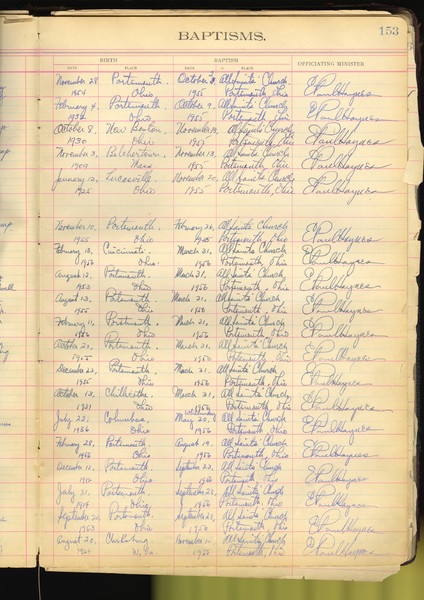 153
BAPTISMS.
BIRTH BAPTISM OFFICIATING MINISTER
DATE PLACE DATE PLACE
November 28 Portsmouth October All Saints' Church
1954 Ohio 1955 Portsmouth, Ohio E Paul Haynes
February 4, Portsmouth October 9, All Saints' Church
Ohio 1955 Portsmouth, Ohio E Paul Haynes
October 8, New Boston, November 13, All Saints' Church
1930 Ohio 1955 Portsmouth, Ohio E Paul Haynes
November 3, Belchertown, November 13, All Saints' Church
1909 Mass 1955 Portsmouth, Ohio E Paul Haynes
January 12, Lucasville, November 20, All Saints' Church
1925 Ohio 1955 Portsmouth, Ohio E Paul Haynes
November 15, Portsmouth, February 26, All Saints' Church
1955 Ohio Portsmouth, Ohio E Paul Haynes
February 13, Cincinnati March 21, All Saints' Church
Ohio 1956 Portsmouth, Ohio E Paul Haynes
August 12, Portsmouth March 21, All Saints' Church
1953 Ohio 1956 Portsmouth, Ohio E Paul Haynes
August 13, Portsmouth March 21, All Saints' Church
1955 Ohio 1956 Portsmouth, Ohio E Paul Haynes
February 11, Portsmouth, March 21, All Saints' Church
Ohio 1956 Portsmouth, Ohio E Paul Haynes
October 21, Portsmouth, March 21, All Saints' Church
1955 Ohio 1956 Portsmouth, Ohio E Paul Haynes
December 22, Portsmouth, March 21, All Saints' Church
1955 Ohio 1956 Portsmouth, Ohio E Paul Haynes
October 12, Chillicothe, March 21, All Saints' Church
1921 Ohio 1956 Portsmouth, Ohio E Paul Haynes
July 22, Columbus, May 20, All Saints' Church
Ohio 1956 Portsmouth, Ohio E Paul Haynes
February 28, Portsmouth, August 19, All Saints' Church
1956 Ohio 1956 Portsmouth, Ohio E Paul Haynes
December 11, Portsmouth September 23, All Saints' Church
Ohio 1956 Portsmouth, Ohio E Paul Haynes
July 31, Portsmouth, September 23, All Saints' Church
Ohio 1956 Portsmouth, Ohio E Paul Haynes
September 20, Portsmouth September 23, All Saints' Church
1953 Ohio 1956 Portsmouth, Ohio E Paul Haynes
August 20, November All Saints' Church
W.Va. 1956 Portsmouth, Ohio E Paul Haynes